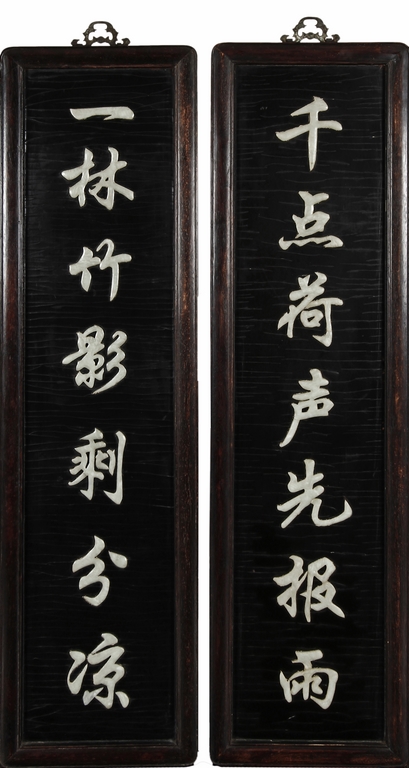 千点荷声先报雨
一林竹影剩分凉